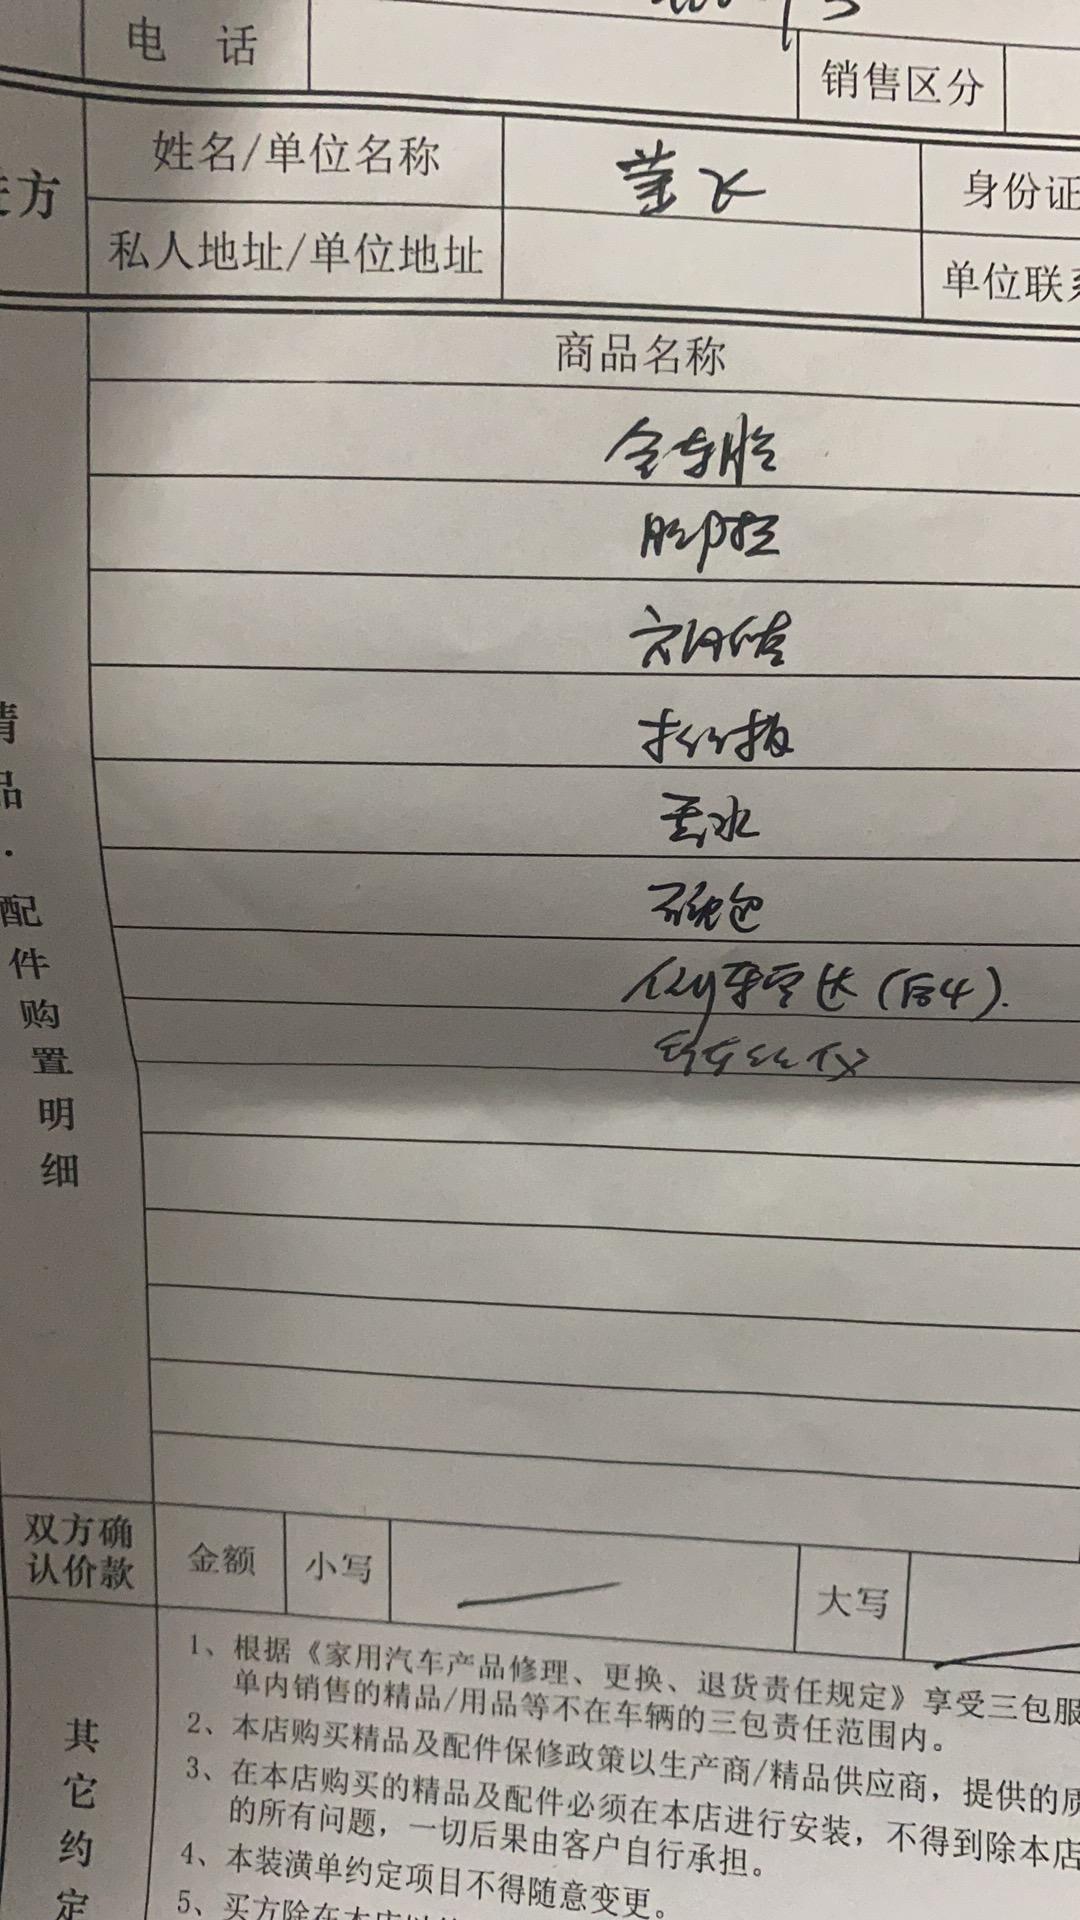 电 话
销售区分
方
姓名/单位名称
身份证
私人地址/单位地址
单位联系
商品名称
全车膜
脚垫
六件套
玻璃水
倒车雷达（后4）.
行车记录仪
精品·配件购置明细
双方确认价款
金额
小写
大写
其它约定
1、根据《家用汽车产品修理、更换、退货责任规定》享受三包服
单内销售的精品/用品等不在车辆的三包责任范围内。
2、本店购买精品及配件保修政策以生产商/精品供应商，提供的质
3、在本店购买的精品及配件必须在本店进行安装，不得到除本店
的所有问题，一切后果由客户自行承担。
4、本装潢单约定项目不得随意变更。
5、买方除在本店以